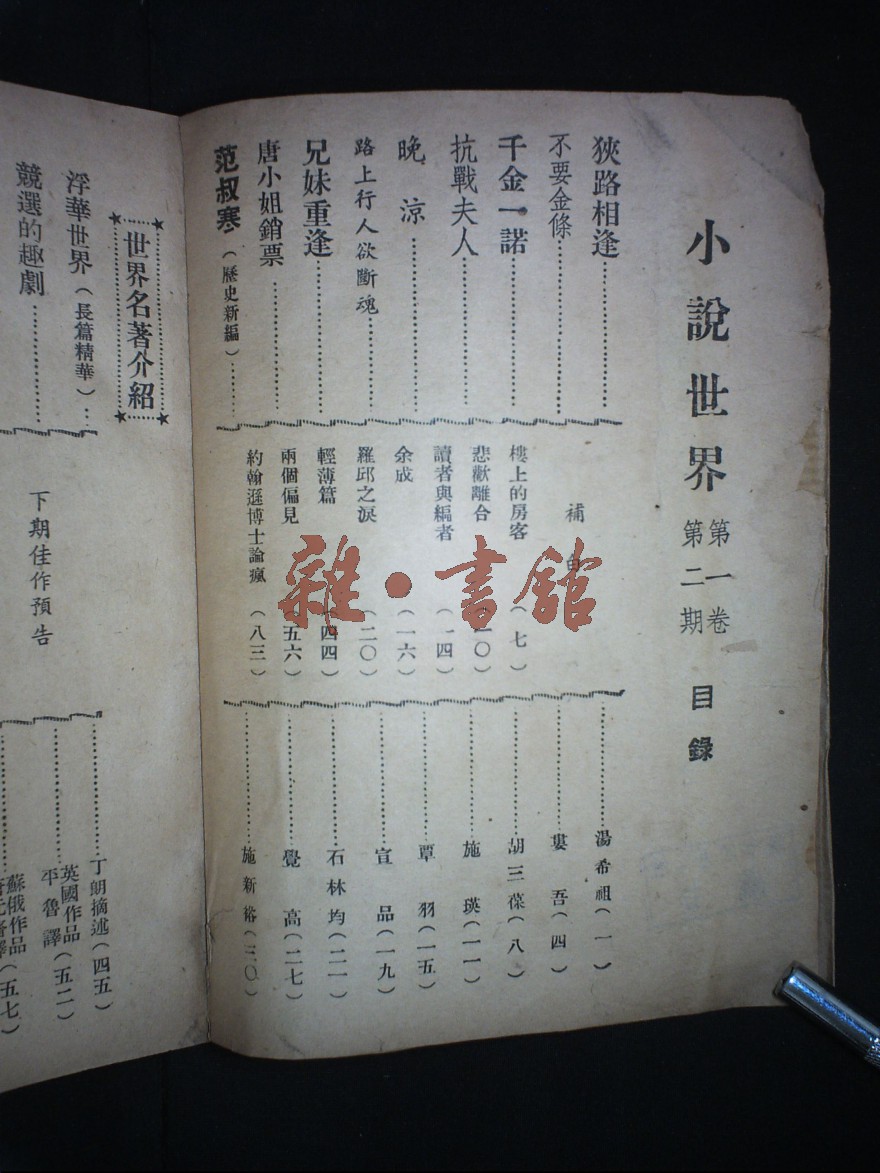 小說世界
第一卷
第二期
目錄
狹路相逢
湯希祖(一)
不要金條
婁吾(四)
千金一諾
胡三葆(八)
抗戰夫人
施瑛(一一)
晚涼
覃羽(一五)
路上行人欲斷魂
宣品(一九)
兄妹重逢
石林均(二一)
唐小姐銷票
覺高(二七)
范叔寒(歷史新編)
施新裕(三〇)
補白
樓上的房客(七)
悲歡離合(一〇)
讀者與編者(一四)
余成(一六)
羅邱之淚(二〇)
輕薄篇(四四)
兩個偏見(五六)
約翰遜博士論瘋(八三)
世界名著介紹
浮華世界(長篇精華)
丁朗摘述(四五)
競選的趣劇
英國作品
平魯譯(五二)
蘇俄作品
譯(五七)
下期佳作預告
雜·書館